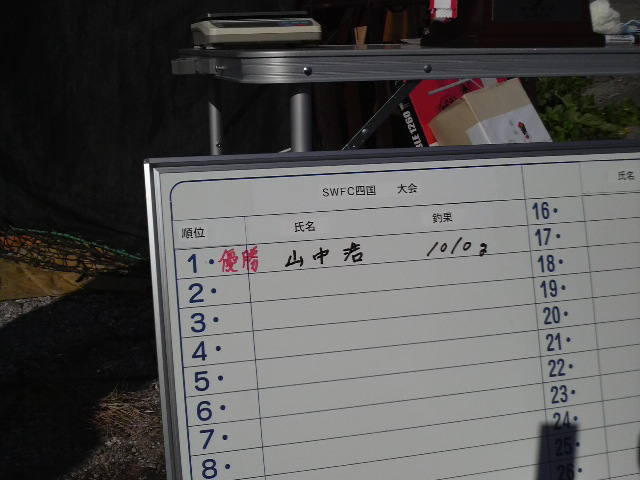 SWFC四国 大会
順位 氏名 釣果 氏名
1・優勝 山中 浩 1010g
2・
3・
4・
5・
6・
7・
8・
16・
17・
18・
19・
20・
21・
22・
23・
24・
25・
26・
1260